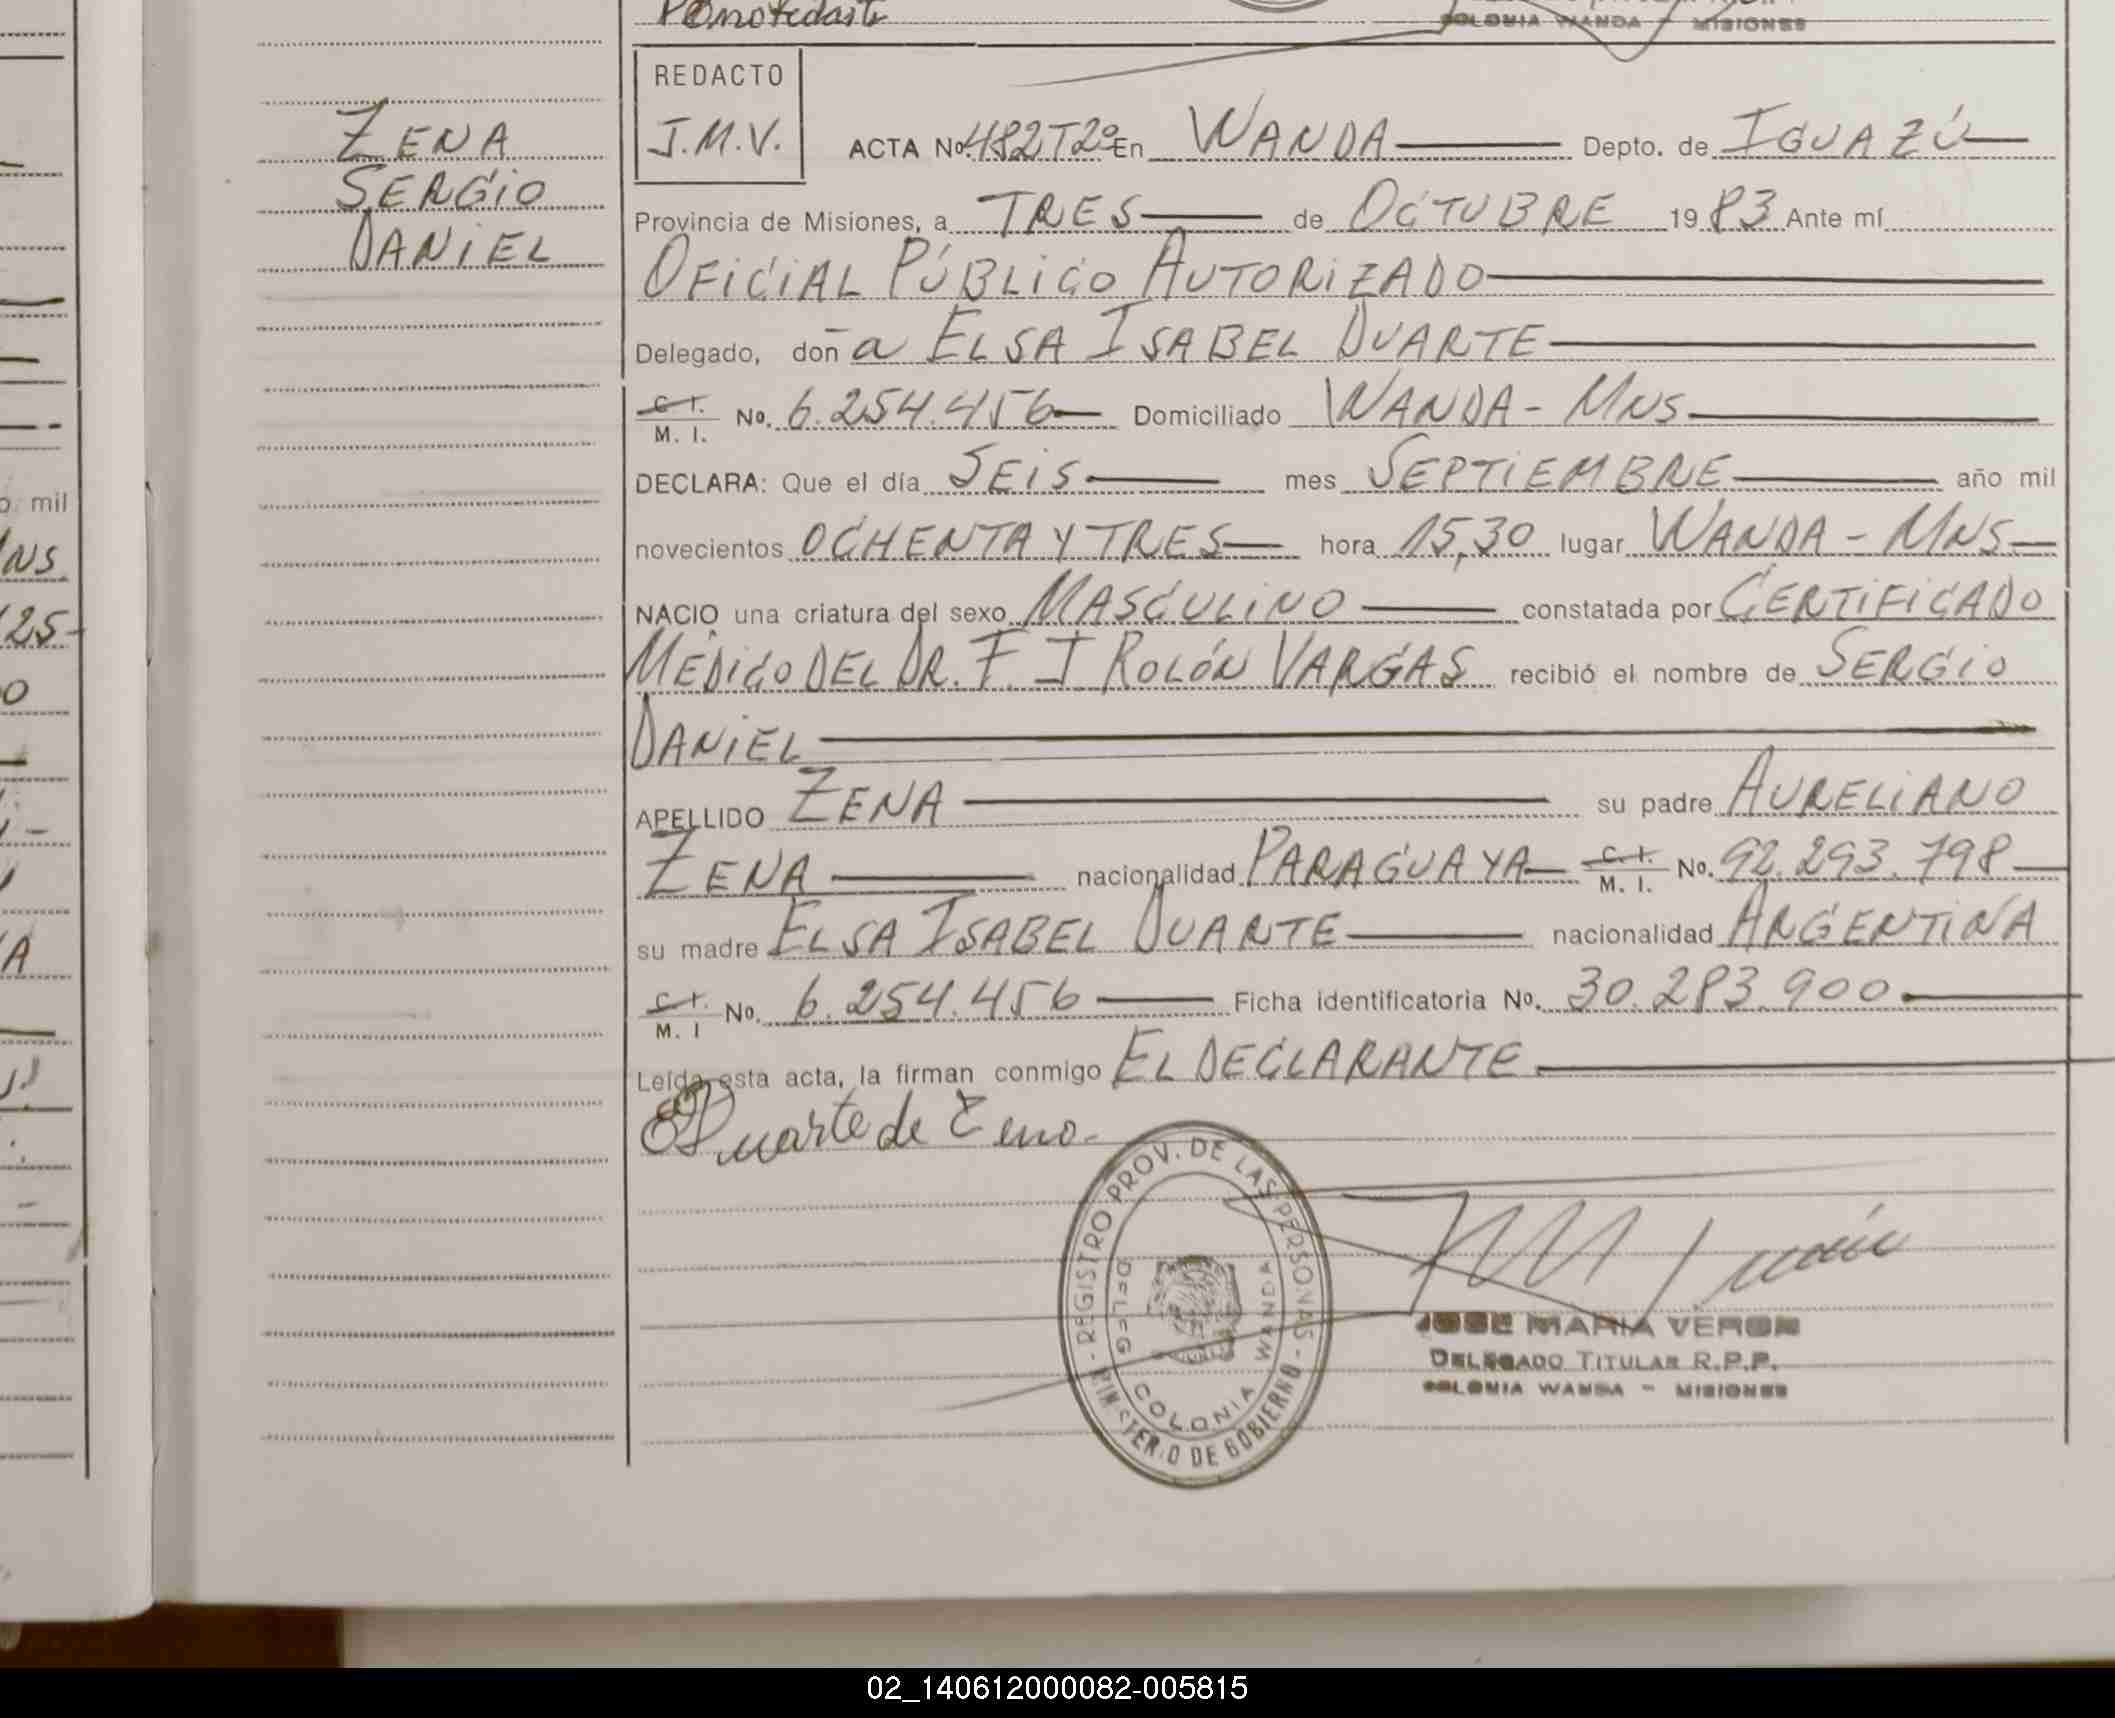 COLONIA WANDA - MISIONES
ZENA
SERGIO
DANIEL
REDACTO
J.M.V.
ACTA Nº 482T2º En WANDA Depto. de IGUAZÚ
Provincia de Misiones, a TRES de OCTUBRE 1983 Ante mí
OFICIAL PÚBLICO AUTORIZADO
Delegado, doña ELSA ISABEL DUARTE
C. I. M. I. No. 6.254.456 Domiciliado WANDA - MNS
DECLARA: Que el día SEIS mes SEPTIEMBRE año mil
novecientos OCHENTA Y TRES hora 15,30 lugar WANDA - MNS
NACIO una criatura del sexo MASCULINO constatada por CERTIFICADO
MÉDICO DEL DR. F. J ROLÓN VARGAS recibió el nombre de SERGIO
DANIEL
APELLIDO ZENA su padre AURELIANO
ZENA nacionalidad PARAGUAYA C. I. M. I. No. 92.293.798
su madre ELSA ISABEL DUARTE nacionalidad ARGENTINA
C. I. M. I No. 6.254.456 Ficha identificatoria No. 30.283.900
Leída esta acta, la firman conmigo EL DECLARANTE
Duarte de Zena.
REGISTRO PROV. DE LAS PERSONAS - MINISTERIO DE GOBIERNO -
DELEG. COLONIA WANDA
JOSE MARIA VERON
DELEGADO TITULAR R.P.P.
COLONIA WANDA - MISIONES
o mil
MNS
25-
O
A
02_140612000082-005815